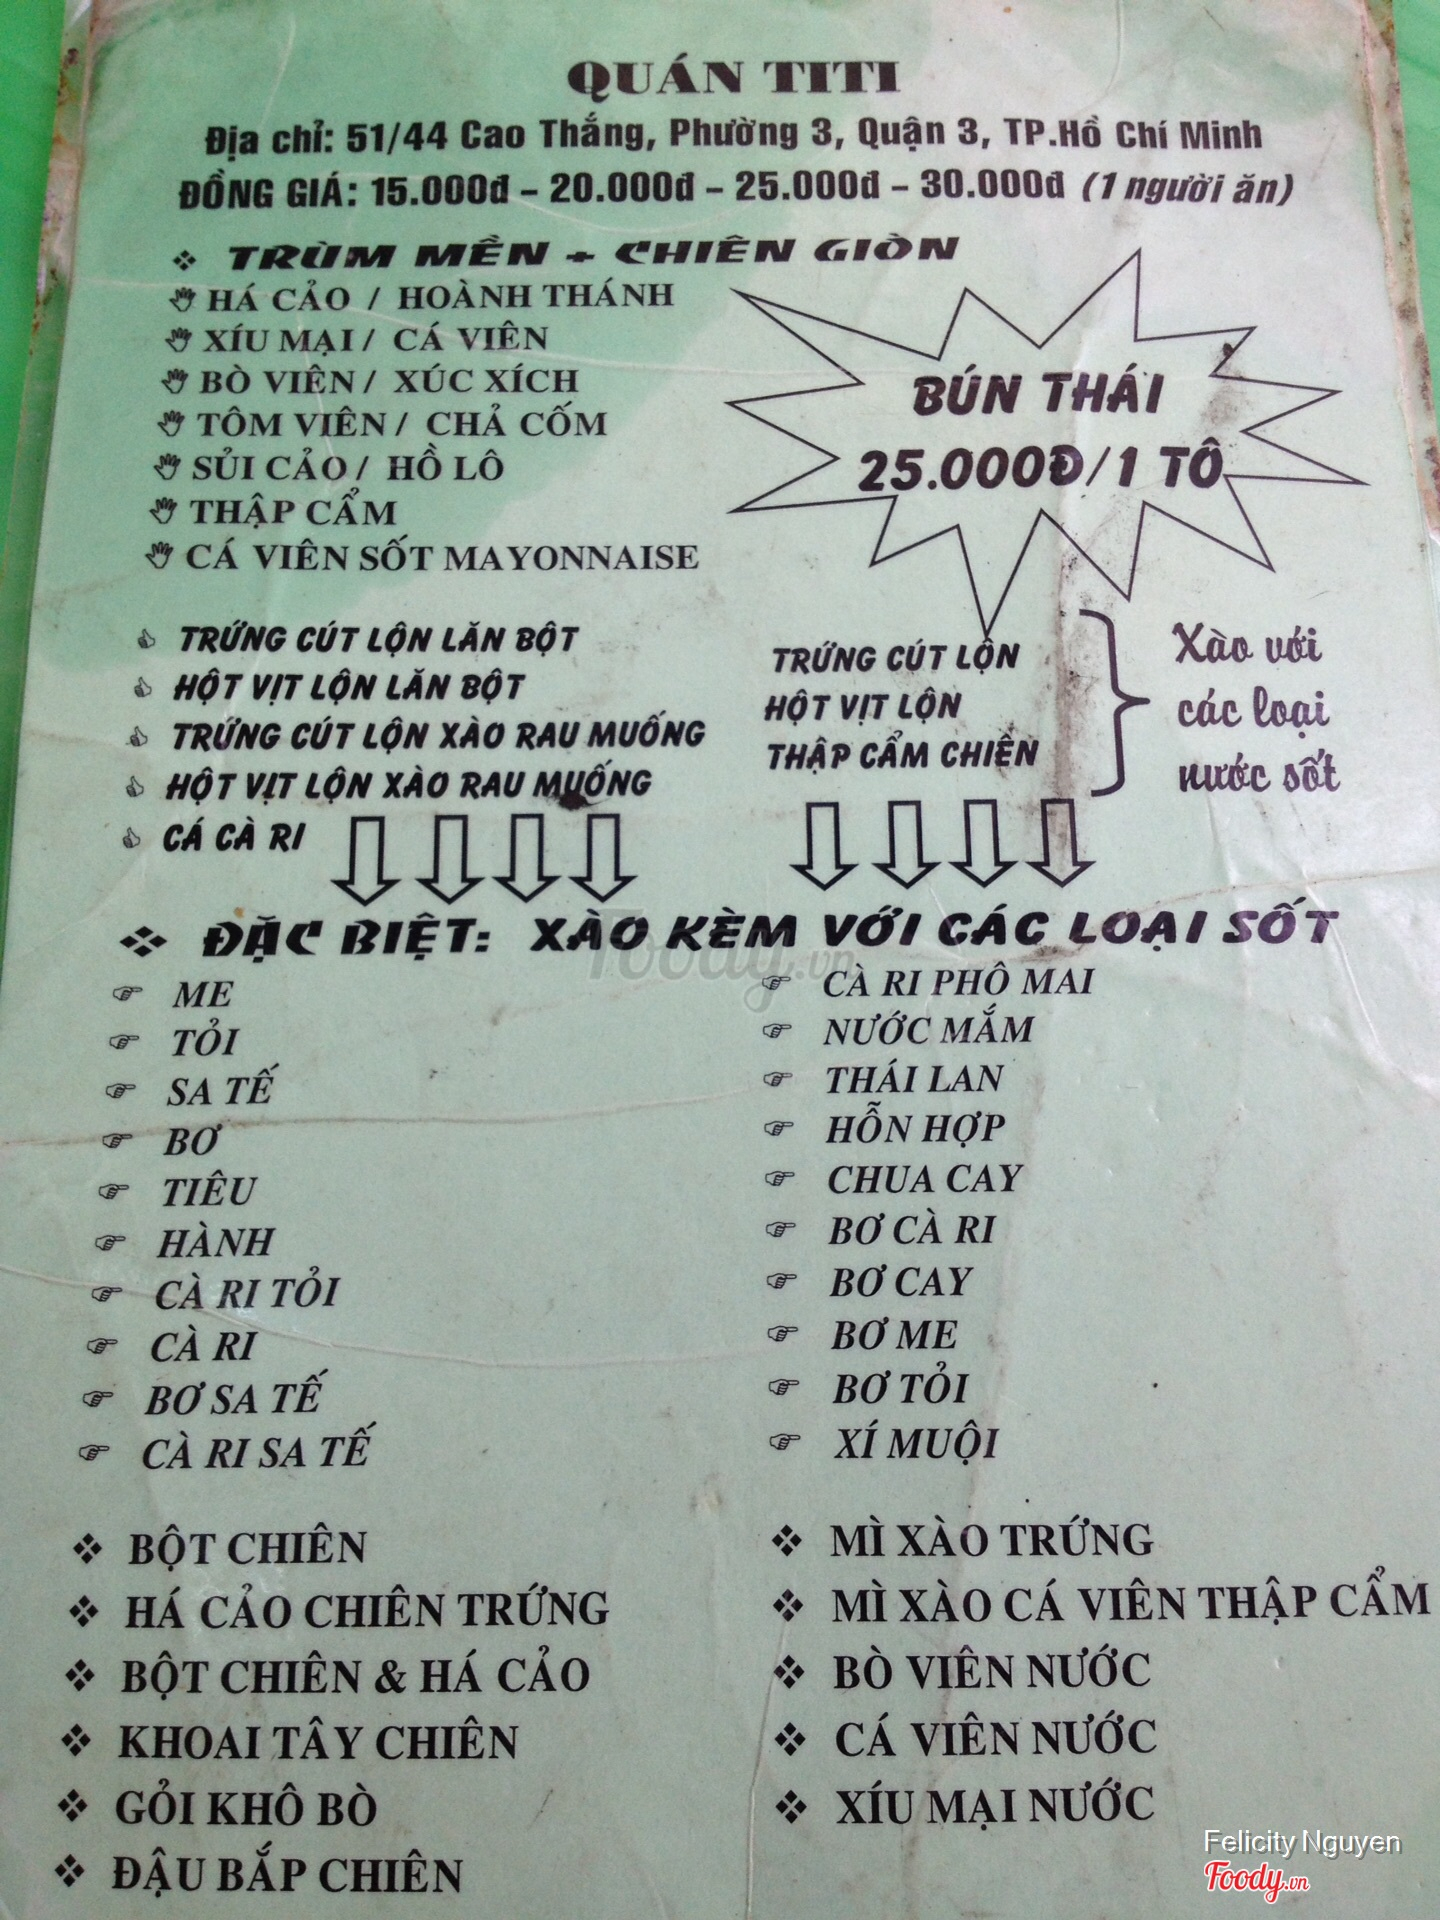 QUÁN TITI
Địa chỉ: 51/44 Cao Thắng, Phường 3, Quận 3, TP.Hồ Chí Minh
ĐỒNG GIÁ: 15.000đ – 20.000đ – 25.000đ – 30.000đ (1 người ăn)
TRÙM MỀN + CHIÊN GIÒN
HÁ CẢO / HOÀNH THÁNH
XÍU MẠI / CÁ VIÊN
BÒ VIÊN / XÚC XÍCH
TÔM VIÊN / CHẢ CỐM
SỦI CẢO / HỒ LÔ
THẬP CẨM
CÁ VIÊN SỐT MAYONNAISE
BÚN THÁI
25.000Đ/1 TÔ
TRỨNG CÚT LỘN LĂN BỘT
HỘT VỊT LỘN LĂN BỘT
TRỨNG CÚT LỘN XÀO RAU MUỐNG
HỘT VỊT LỘN XÀO RAU MUỐNG
CÁ CÀ RI
TRỨNG CÚT LỘN
HỘT VỊT LỘN
THẬP CẨM CHIÊN
Xào với
các loại
nước sốt
ĐẶC BIỆT: XÀO KÈM VỚI CÁC LOẠI SỐT
Foody.vn
ME
TỎI
SA TẾ
BƠ
TIÊU
HÀNH
CÀ RI TỎI
CÀ RI
BƠ SA TẾ
CÀ RI SA TẾ
CÀ RI PHÔ MAI
NƯỚC MẮM
THÁI LAN
HỖN HỢP
CHUA CAY
BƠ CÀ RI
BƠ CAY
BƠ ME
BƠ TỎI
XÍ MUỘI
BỘT CHIÊN
HÁ CẢO CHIÊN TRỨNG
BỘT CHIÊN & HÁ CẢO
KHOAI TÂY CHIÊN
GỎI KHÔ BÒ
ĐẬU BẮP CHIÊN
MÌ XÀO TRỨNG
MÌ XÀO CÁ VIÊN THẬP CẨM
BÒ VIÊN NƯỚC
CÁ VIÊN NƯỚC
XÍU MẠI NƯỚC
Felicity Nguyen
Foody.vn